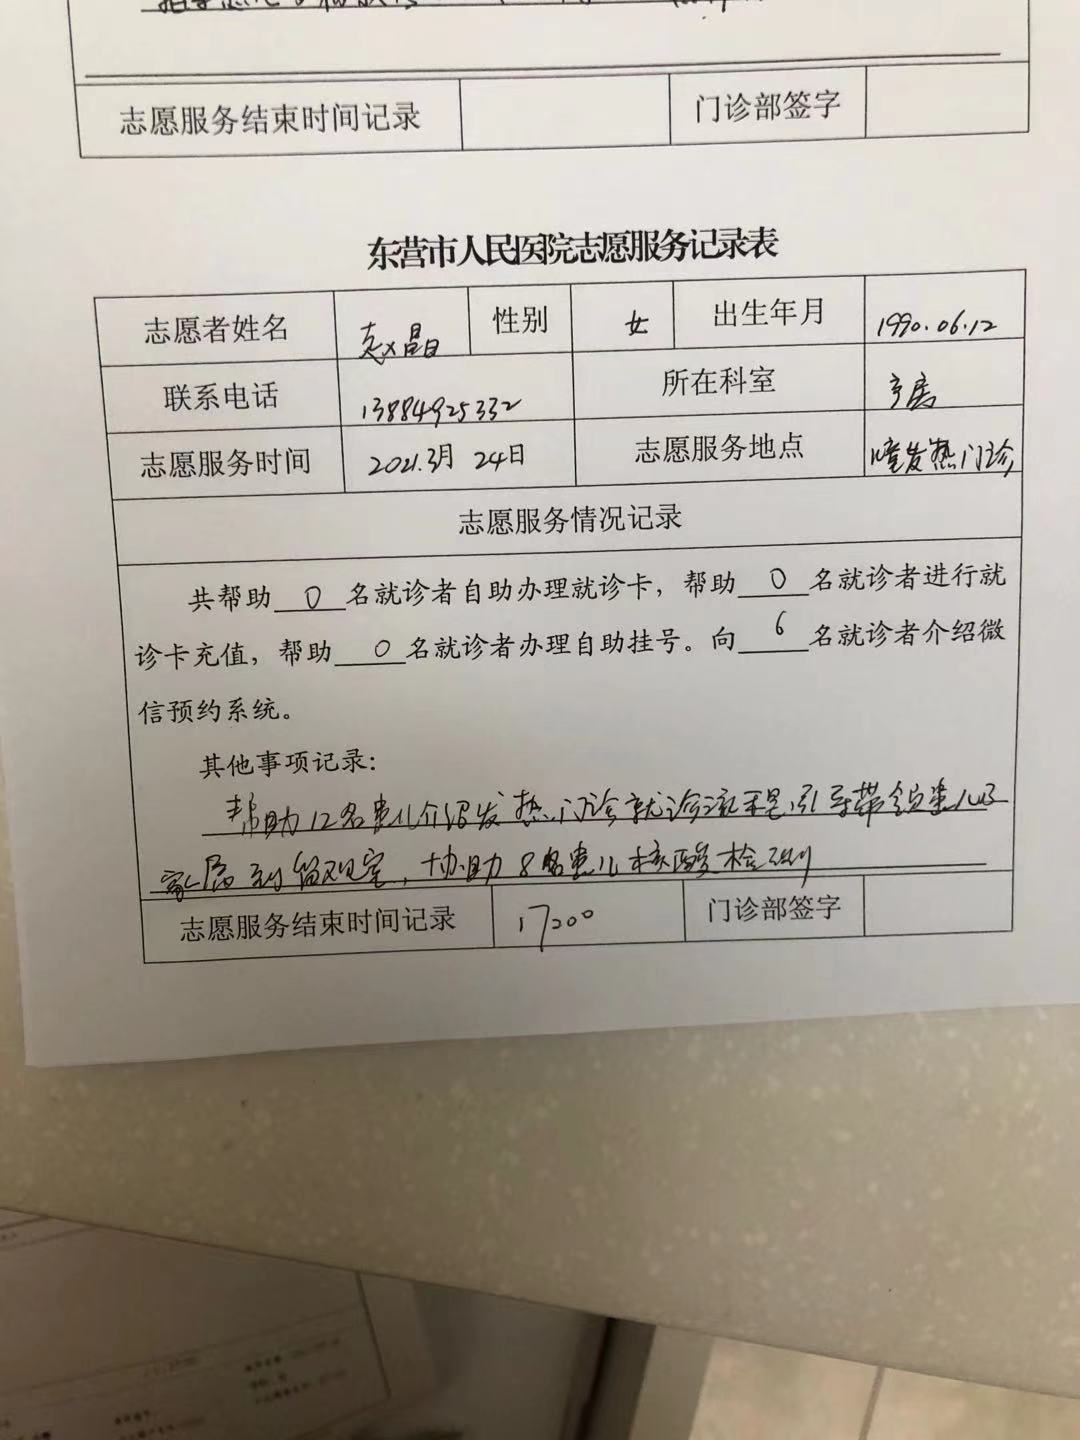 志愿服务结束时间记录 门诊部签字
东营市人民医院志愿服务记录表
志愿者姓名 赵晶 性别 女 出生年月 1990.06.12
联系电话 13884925332 所在科室 产房
志愿服务时间 2021.3月 24日 志愿服务地点 儿童发热门诊
志愿服务情况记录
共帮助 0 名就诊者自助办理就诊卡，帮助 0 名就诊者进行就
诊卡充值，帮助 0 名就诊者办理自助挂号。向 6 名就诊者介绍微
信预约系统。
其他事项记录：
帮助12名患儿介绍发热门诊就诊流程，引导带领患儿及
家属到留观室，协助8名患儿核酸检测
志愿服务结束时间记录 17:00 门诊部签字